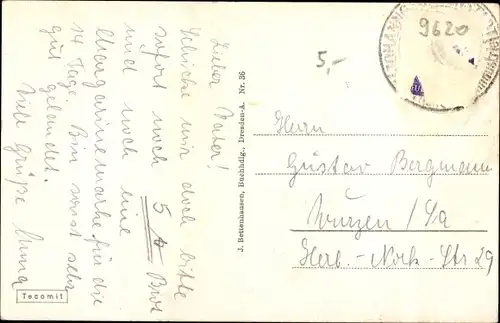 Lieber Vater!
Schicke mir doch bitte
sofort noch 5 Brot
und noch eine
Margarinemarke für die
14 Tage. Bin sonst sehr
gut gelandet.
Viele Grüße Anna
Tecomit
J. Bettenhausen, Buchhdlg., Dresden-A. Nr. 36
5,-
9620
Herrn
Gustav Bergmann
Wurzen / Sa
Herb.-Nork-Str 29